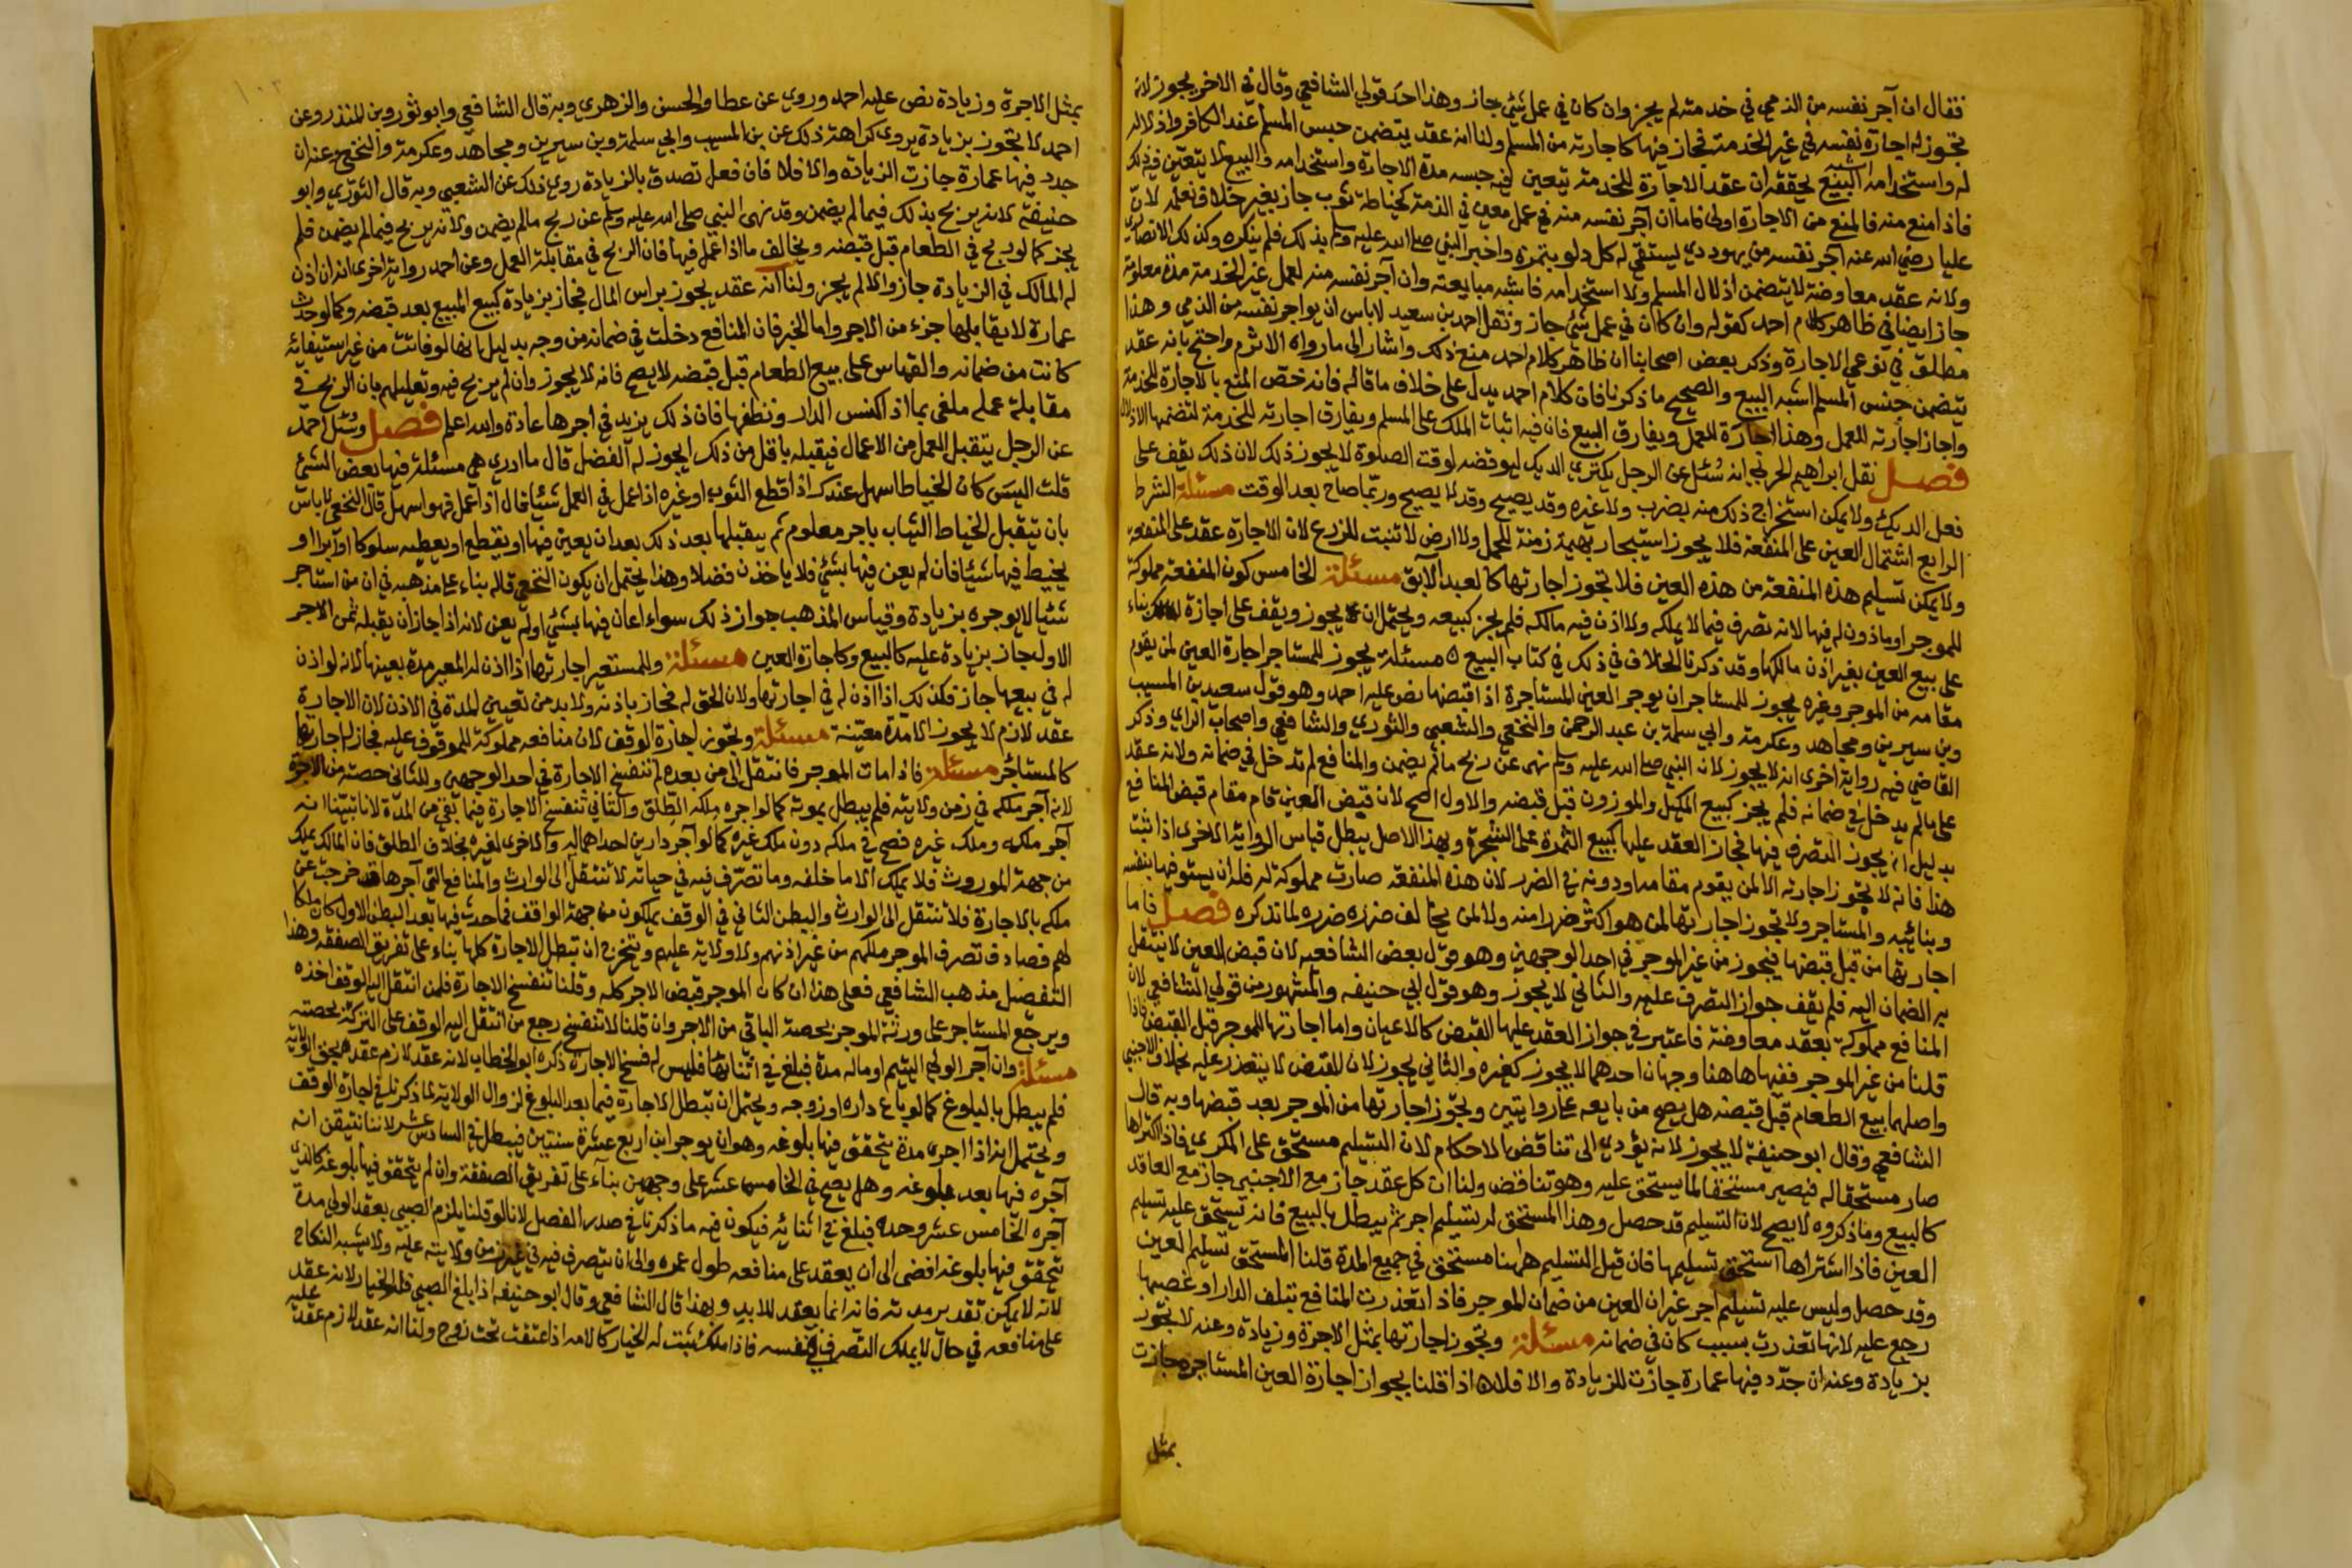 فقال ان آجر نفسه من الذمي في خدمته لم يجز وان كان في عمل شئي جاز وهذا احد قولي الشافعي وقال في الاخر يجوز لانه
تجوز له اجارة نفسه في غير الخدمة فجاز فيها كاجارته من المسلم ولنا انه عقد يتضمن حبس المسلم عند الكافر واذلاله
له واستخدامه اشبه البيع يحققه ان عقد الاجارة للخدمة يتعين فيه حبسه مدة الاجارة واستخدامه والبيع لا يتعين فيه ذلك
فاذا منع منه فالمنع من الاجارة اولى فاما ان آجر نفسه منه في عمل معين في الذمة كخياطة ثوب جاز بغير خلاف نعلمه لان
عليا رضي الله عنه آجر نفسه من يهودي ليستقي له كل دلو بتمرة واخبر النبي صلى الله عليه وسلم بذلك فلم ينكره وكذلك الانصاري
ولانه عقد معاوضة لا يتضمن اذلال المسلم ولا استخدامه فاشبه مبايعته وان آجر نفسه منه لعمل غير الخدمة مدة معلومة
جاز ايضا في ظاهر كلام احمد كقوله وان كان في عمل شئي جاز ونقل احمد بن سعيد لا باس ان يواجر نفسه من الذمي وهذا
مطلق في نوعي الاجارة وذكر بعض اصحابنا ان ظاهر كلام احمد منع ذلك واشار الى ما رواه الاثرم واحتج بانه عقد
يتضمن حبس المسلم اشبه البيع والصحيح ما ذكرنا فان كلام احمد يدل على خلاف ما قاله فانه خص المنع بالاجارة للخدمة
واجاز اجارته للعمل وهذا اجارة للعمل ويفارق البيع فان فيه اثبات الملك على المسلم ويفارق اجارته للخدمة لتضمنها الاذلال
فصل نقل ابراهيم الحربي انه سُئل عن الرجل يكتري الديك ليوقضه لوقت الصلوة لا يجوز ذلك لان ذلك يقف على
فعل الديك ولا يمكن استخراج ذلك منه بضرب ولا غيره وقد يصيح وقد لا يصيح وربما صاح بعد الوقت مسئلة الشرط
الرابع اشتمال العين على المنفعة فلا يجوز استيجار بهيمة زمنة للحمل ولا ارض لا تنبت للزرع لان الاجارة عقد على المنفعة
ولا يمكن تسليم هذه المنفعة من هذه العين فلا تجوز اجارتها كالعبد الآبق مسئلة الخامس كون المنفعة مملوكة
للموجر او ماذون له فيها لانه تصرف فيما لا يملكه ولا اذن فيه مالكه فلم يجز كبيعه ويحتمل ان يجوز ويقف على اجازة المالك بناء
على بيع العين بغير اذن مالكها وقد ذكرنا الخلاف في ذلك في كتاب البيع ٥ مسئلة يجوز للمستاجر اجارة العين لمن يقوم
مقامه من الموجر وغيره يجوز للمستاجر ان يوجر العين المستاجرة اذا قبضها نص عليه احمد وهو قول سعيد بن المسيب
وبن سيرين ومجاهد وعكرمة وابي سلمة بن عبد الرحمن والنخعي والشعبي والثوري والشافعي واصحاب الراي وذكر
القاضي فيه رواية اخرى انه لا يجوز لان النبي صلى الله عليه وسلم نهى عن ربح ما لم يضمن والمنافع لم تدخل في ضمانه ولانه عقد
على ما لم يدخل في ضمانه فلم يجز كبيع المكيل والموزون قبل قبضه والاول اصح لان قبض العين قام مقام قبض المنافع
بدليل انه يجوز التصرف فيها فجاز العقد عليها كبيع الثمرة على الشجرة وبهذا الاصل يبطل قياس الرواية الاخرى اذا ثبت
هذا فانه لا تجوز اجارته الا لمن يقوم مقامه او دونه في الضرر لان هذه المنفعة صارت مملوكة له فله ان يستوفيها بنفسه
وبنائبه والمستاجر ولا تجوز اجارتها لمن هو اكثر ضررا منه ولا لمن يخالف ضرره ضرره لما نذكره فصل فاما
اجارتها من قبل قبضها فيجوز من غير الموجر في احد الوجهين وهو قول بعض الشافعيه لان قبض العين لا ينتقل
به الضمان اليه فلم يقف جواز التصرف عليه والثاني لا يجوز وهو قول ابي حنيفه والمشهور من قولي الشافعي لان
المنافع مملوكة بعقد معاوضة فاعتبر في جواز العقد عليها القبض كالاعيان واما اجارتها للموجر قبل القبض فاذا
قلنا من غير الموجر ففيها هاهنا وجهان احدهما لا يجوز كغيره والثاني يجوز لان القبض لا يتعذر عليه بخلاف الاجنبي
واصلهما بيع الطعام قبل قبضه هل يصح من بايعه على روايتين وتجوز اجارتها من الموجر بعد قبضها وبه قال
الشافعي وقال ابو حنيفة لا يجوز لانه يؤدي الى تناقض الاحكام لان التسليم مستحق على المكري فاذا اكتراها
صار مستحقا له فيصير مستحقا لما يستحق عليه وهو تناقض ولنا ان كل عقد جاز مع الاجنبي جاز مع العاقد
كالبيع وما ذكروه لا يصح لان التسليم قد حصل وهذا المستحق له تسليم اجر ثم يبطل بالبيع فانه تستحق عليه تسليم
العين فاذا اشتراها استحق تسليمها فان قيل التسليم ههنا مستحق في جميع المدة قلنا المستحق تسليم العين
وقد حصل وليس عليه تسليم اجر غير ان العين من ضمان الموجر فاذا تعذرت المنافع بتلف الدار او غصبها
رجع عليه لانها تعذرت بسبب كان في ضمانه مسئلة وتجوز اجارتها بمثل الاجرة وزيادة وعنه لا تجوز
بزيادة وعنه ان جدّد فيها عمارة جازت الزيادة والا فلا ٥ اذا قلنا بجواز اجارة العين المستاجرة جازت
بمثل
١٠٣
بمثل الاجرة وزيادة نص عليه احمد وروي عن عطا والحسن والزهري وبه قال الشافعي وابو ثور وبن المنذر وعن
احمد لا تجوز بزيادة يروى كراهة ذلك عن بن المسيب وابي سلمة وبن سيرين ومجاهد وعكرمة والنخعي وعنه ان
جدد فيها عمارة جازت الزيادة والا فلا فان فعل تصدق بالزيادة روي ذلك عن الشعبي وبه قال الثوري وابو
حنيفة لانه يربح بذلك فيما لم يضمن وقد نهى النبي صلى الله عليه وسلم عن ربح ما لم يضمن ولانه يربح فيما لم يضمن فلم
يجز كما لو ربح في الطعام قبل قبضه ويخالف ما اذا عمل فيها فان الربح في مقابلة العمل وعن احمد رواية اخرى انه ان اذن
له المالك في الزيادة جاز والا لم يجز ولنا انه عقد يجوز براس المال فجاز بزيادة كبيع المبيع بعد قبضه وكما لو حدث
عمارة لا يقابلها جزء من الاجر واما الخبر فان المنافع دخلت في ضمانه من وجه بدليل انها لو فاتت من غير استيفائه
كانت من ضمانه والقياس على بيع الطعام قبل قبضه لا يصح فانه لا يجوز وان لم يربح فيه وتعليلهم بان الربح في
مقابلة عمله ملغى بما اذا كنس الدار ونظفها فان ذلك يزيد في اجرها عادة والله اعلم فصل وسُئل احمد
عن الرجل يتقبل العمل من الاعمال فيقبله باقل من ذلك ايجوز له الفضل قال ما ادري هي مسئلة فيها بعض الشئ
قلت اليس كان الخياط اسهل عندك اذا قطع الثوب او غيره اذا عمل في العمل شيئا قال اذا عمل فهو اسهل قال النخعي لا باس
بان يتقبل الخياط الثياب باجر معلوم ثم يقبلها بعد ذلك بعد ان يعين فيها او يقطع او يعطيه سلوكا او ابرا او
يخيط فيها شيئا فان لم يعن فيها بشئي فلا ياخذن فضلا وهذا يحتمل ان يكون النخعي قاله بناء على مذهبه في ان من استاجر
شئيا لا يوجره بزيادة وقياس المذهب جواز ذلك سواء اعان فيها بشئي او لم يعن لانه اذا جاز ان يقبله بمثل الاجر
الاول جاز بزيادة عليه كالبيع وكاجارة العين مسئلة وللمستعير اجارتها اذا اذن له المعير مدة بعينها لانه لو اذن
له في بيعها جاز فكذلك اذا اذن له في اجارتها ولان الحق له فجاز باذنه ولا بد من تعيين المدة في الاذن لان الاجارة
عقد لازم لا يجوز الا مدة معيّنة مسئلة وتجوز اجارة الوقف لان منافعه مملوكة للموقوف عليه فجاز له اجارتها
كالمستاجر مسئلة فاذا مات الموجر فانتقل الى من بعده لم تنفسخ الاجارة في احد الوجهين وللثاني حصته من الاجرة
لانه آجر ملكه في زمن ولايته فلم يبطل بموته كما لو اجره ملكه الطلق والثاني تنفسخ الاجارة فيما بقي من المدّة لانا تبيّنا انه
آجر ملكه وملك غيره فصح في ملكه دون ملك غيره كما لو آجر دارين احداهما له والاخرى لغيره بخلاف الطلق فان المالك يملك
من جهة الموروث فلا يملك الا ما خلفه وما تصرّف فيه في حياته لا تنتقل الى الوارث والمنافع التي آجرها قد خرجت عن
ملكه بالاجارة فلا تنتقل الى الوارث والبطن الثاني في الوقف يملكون من جهة الواقف فما حدث فيها بعد البطن الاول كان ملكا
لهم فصادف تصرف الموجر ملكهم من غير اذنهم ولا ولاية عليهم ويتخرج ان تبطل الاجارة كلها بناء على تفريق الصفقة وهذا
التفصيل مذهب الشافعي فعلى هذا ان كان الموجر قبض الاجر كله وقلنا تنفسخ الاجارة فلمن انتقل اليه الوقف اخذه
ويرجع المستاجر على ورثة الموجر بحصة الباقي من الاجر وان قلنا لا تنفسخ رجع من انتقل اليه الوقف على التركة بحصته
مسئلة وان آجر الولي اليتيم او ماله مدة فبلغ في اثنائها فليس له فسخ الاجارة ذكره ابو الخطاب لانه عقد لازم عقده بحق الولاية
فلم يبطل بالبلوغ كما لو باع داره او زوجه ويحتمل ان تبطل الاجارة فيما بعد البلوغ لزوال الولاية لما ذكرنا في اجارة الوقف
ويحتمل انه اذا اجره مدة يتحقق فيها بلوغه وهو ان يوجر ابن اربع عشرة سنتين فيبطل في السادس عشر لاننا نتيقن انه
آجره فيها بعد بلوغه وهل يصح في الخامس عشر على وجهين بناء على تفريق الصفقة وان لم يتحقق فيها بلوغه كالذي
آجره الخامس عشر وحده فبلغ في اثنائه فيكون فيه ما ذكرنا في صدر الفصل لانا لو قلنا يلزم الصبي بعقد الولي مدة
يتحقق فيها بلوغه افضى الى ان يعقد على منافعه طول عمره والى ان يتصرف فيه في غير زمن ولايته عليه ولا يشبه النكاح
لانه لا يمكن تقدير مدته فانه انما يعقد للابد وبهذا قال الشافعي وقال ابو حنيفه اذا بلغ الصبي فله الخيار لانه عقد
على منافعه في حال لا يملك التصرف في نفسه فاذا ملك ثبت له الخيار كالامه اذا عتقت تحت زوج ولنا انه عقد لازم عقد عليه